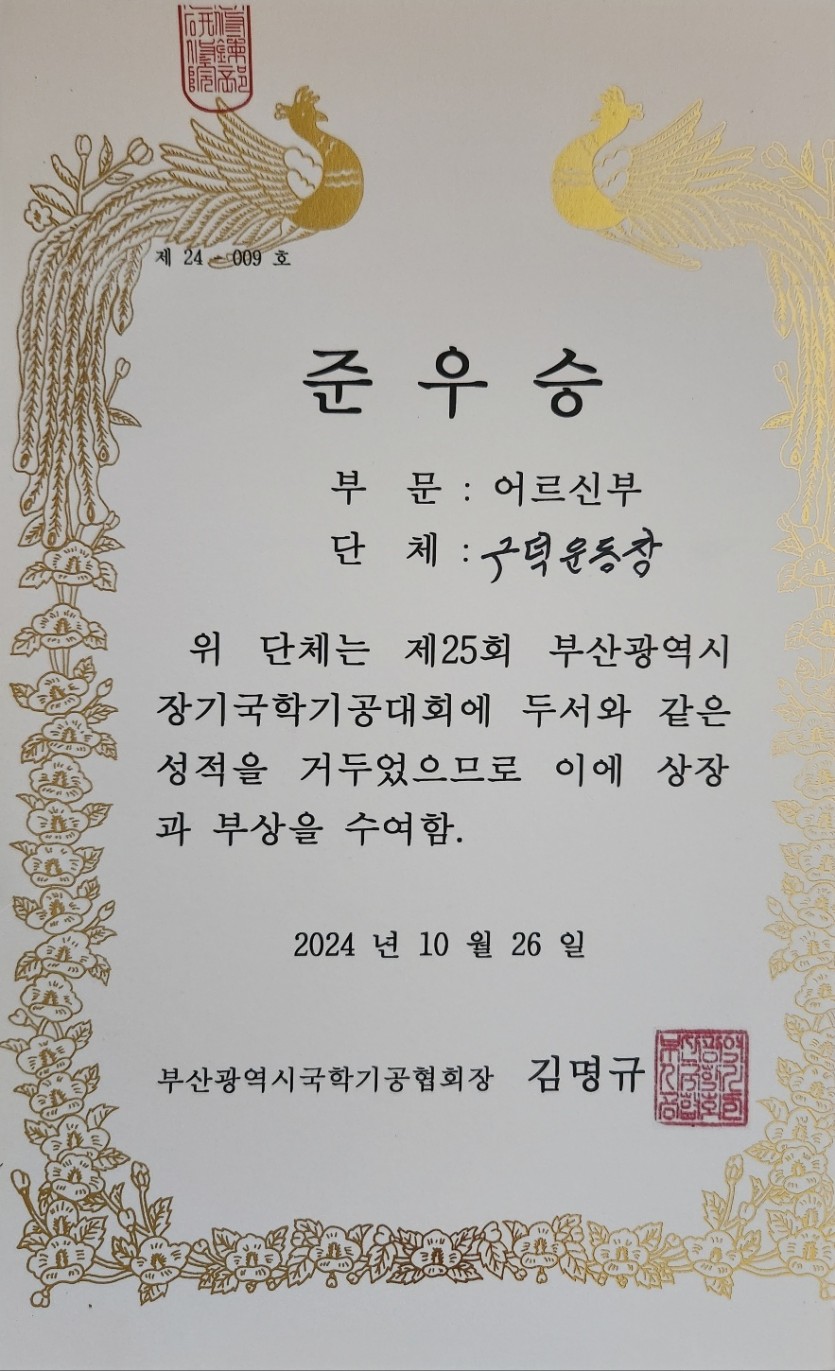 제 24 - 009 호
준 우 승
부 문 : 어르신부
단 체 : 구덕운동장
위 단체는 제25회 부산광역시
장기국학기공대회에 두서와 같은
성적을 거두었으므로 이에 상장
과 부상을 수여함.
2024 년 10 월 26 일
부산광역시국학기공협회장 김명규